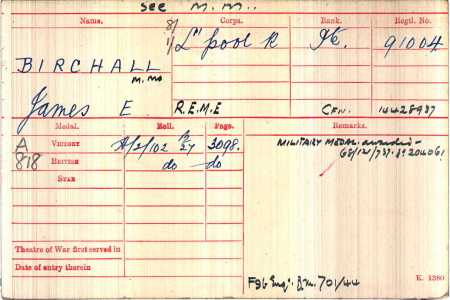 see M.M.
Name. Corps. Rank. Regtl. No.
8/
1/ L'pool R Pte. 91004
BIRCHALL
M.M.
James E. R.E.M.E CFN. 14428937
Medal. Roll. Page. Remarks.
A VICTORY A/2/102 B27 3098. MILITARY MEDAL awarded-
818 BRITISH do do 68/121/737.
STAR
Theatre of War first served in
Date of entry therein
K. 1380
701/44